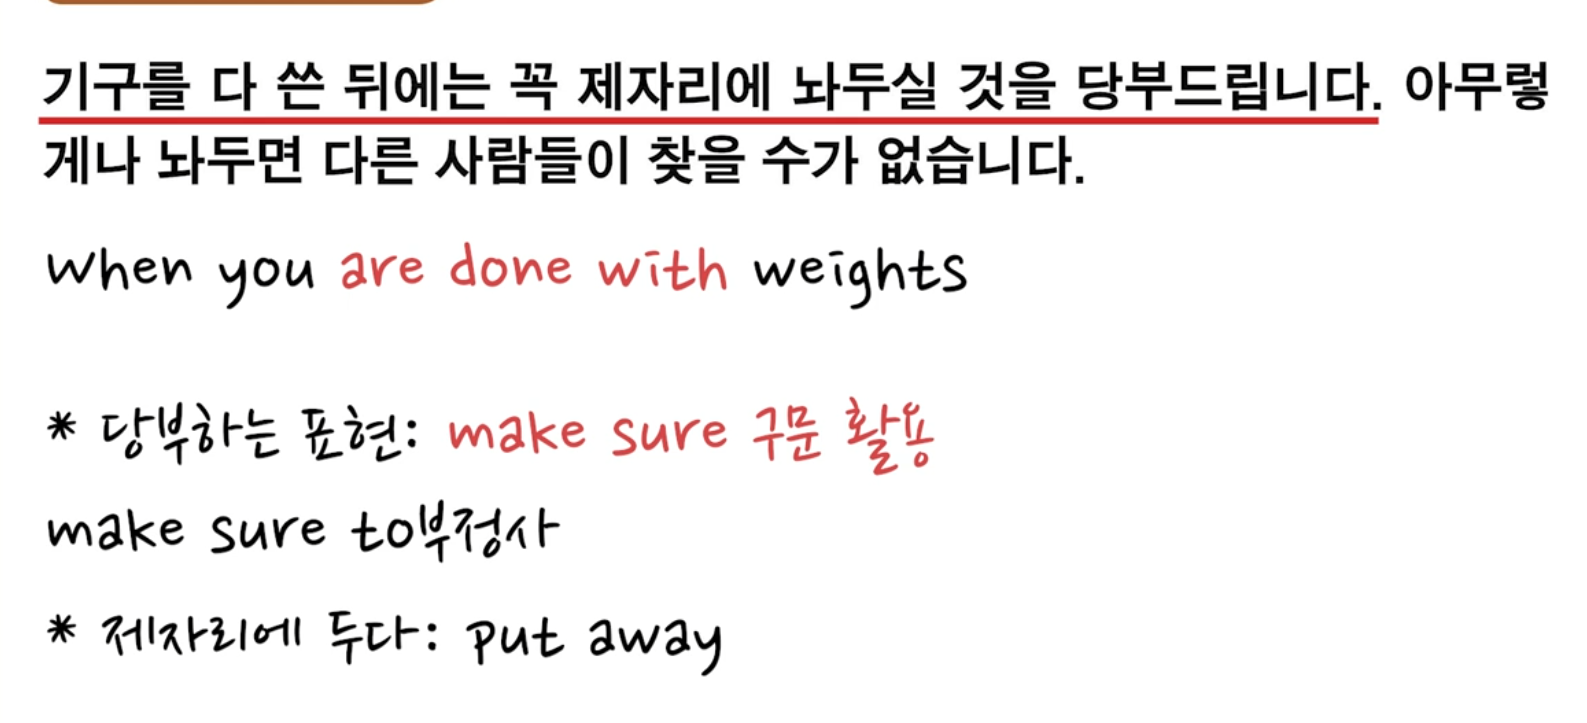 기구를 다 쓴 뒤에는 꼭 제자리에 놔두실 것을 당부드립니다. 아무렇
게나 놔두면 다른 사람들이 찾을 수가 없습니다.
When you are done with weights
* 당부하는 표현: make sure 구문 활용
make sure to부정사
* 제자리에 두다: put away